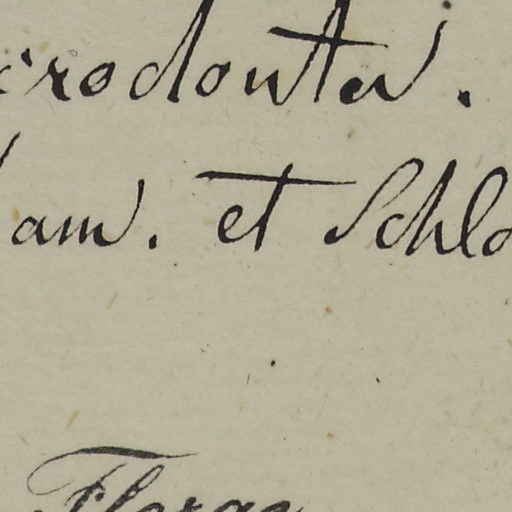 crodonta.
am. et Schlo
Florae